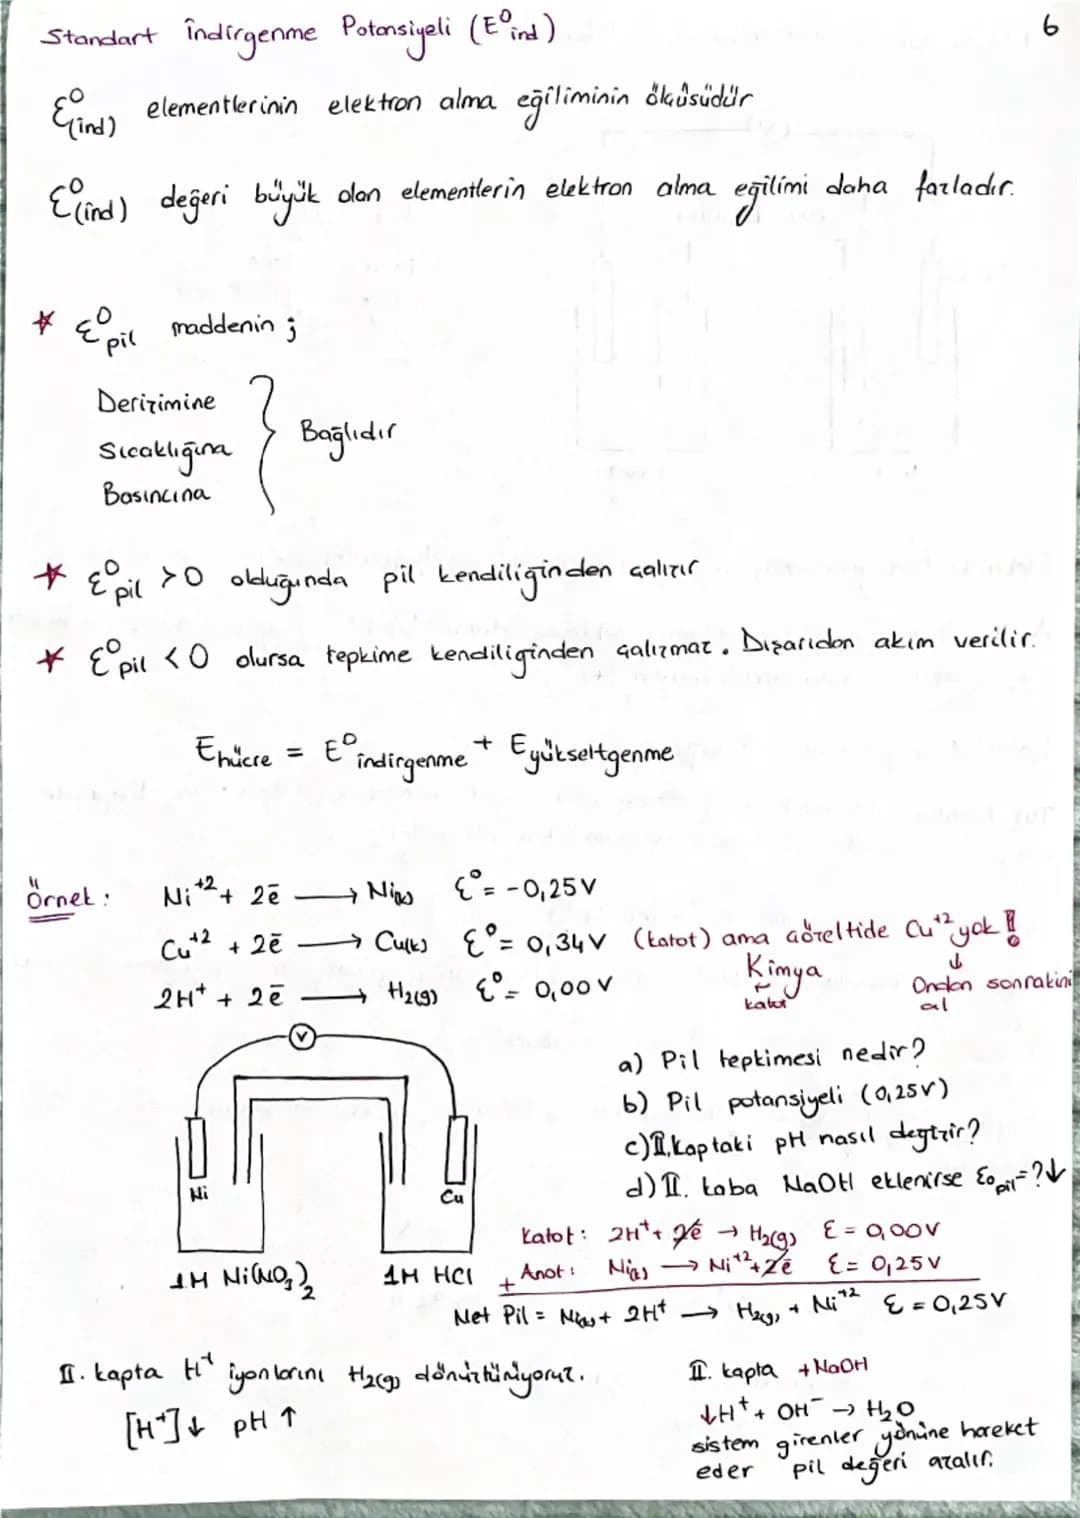 Standart indirgenme Potansiyeli (E⁰ind)
6
Ɛ⁰(ind) elementlerinin elektron alma eğiliminin ölçüsüdür
Ɛ⁰(ind) değeri büyük olan elementlerin elektron alma eğilimi daha fazladır.
* Ɛ⁰pil maddenin ;
Derişimine
Sıcaklığına
Basıncına
Bağlıdır
* Ɛ⁰pil >0 olduğunda pil kendiliğinden çalışır
* Ɛ⁰pil <0 olursa tepkime kendiliginden çalışmaz. Dışarıdan akım verilir.
Ehücre = E⁰indirgenme + Eyükseltgenme
Örnek :
Ni⁺² + 2ē → Ni(k) Ɛ⁰= -0,25V
Cu⁺² + 2ē → Cu(k) Ɛ⁰= 0,34V (katot) ama çözeltide Cu⁺² yok !
2H⁺ + 2ē → H₂(g) Ɛ⁰= 0,00 V
Kimya
katot
↓
Ondan sonrakini
al
V
a) Pil tepkimesi nedir?
b) Pil potansiyeli (0,25V)
c) II. Kaptaki pH nasıl değişir?
d) II. kaba NaOH eklenirse Ɛ₀pil=?↓
Ni
Cu
1M Ni(NO₃)₂
1M HCl
Katot : 2H⁺ + 2ē → H₂(g) Ɛ = 0,00V
+ Anot : Ni(k) → Ni⁺² + 2ē Ɛ = 0,25V
Net Pil = Ni(k) + 2H⁺ → H₂(g) + Ni⁺² Ɛ = 0,25V
II. kapta H⁺ iyonlarını H₂(g) dönüştürüyoruz.
[H⁺]↓ pH ↑
II. kapta +NaOH
↓H⁺ + OH⁻ → H₂O
sistem girenler yönüne hareket
eder pil değeri azalır.